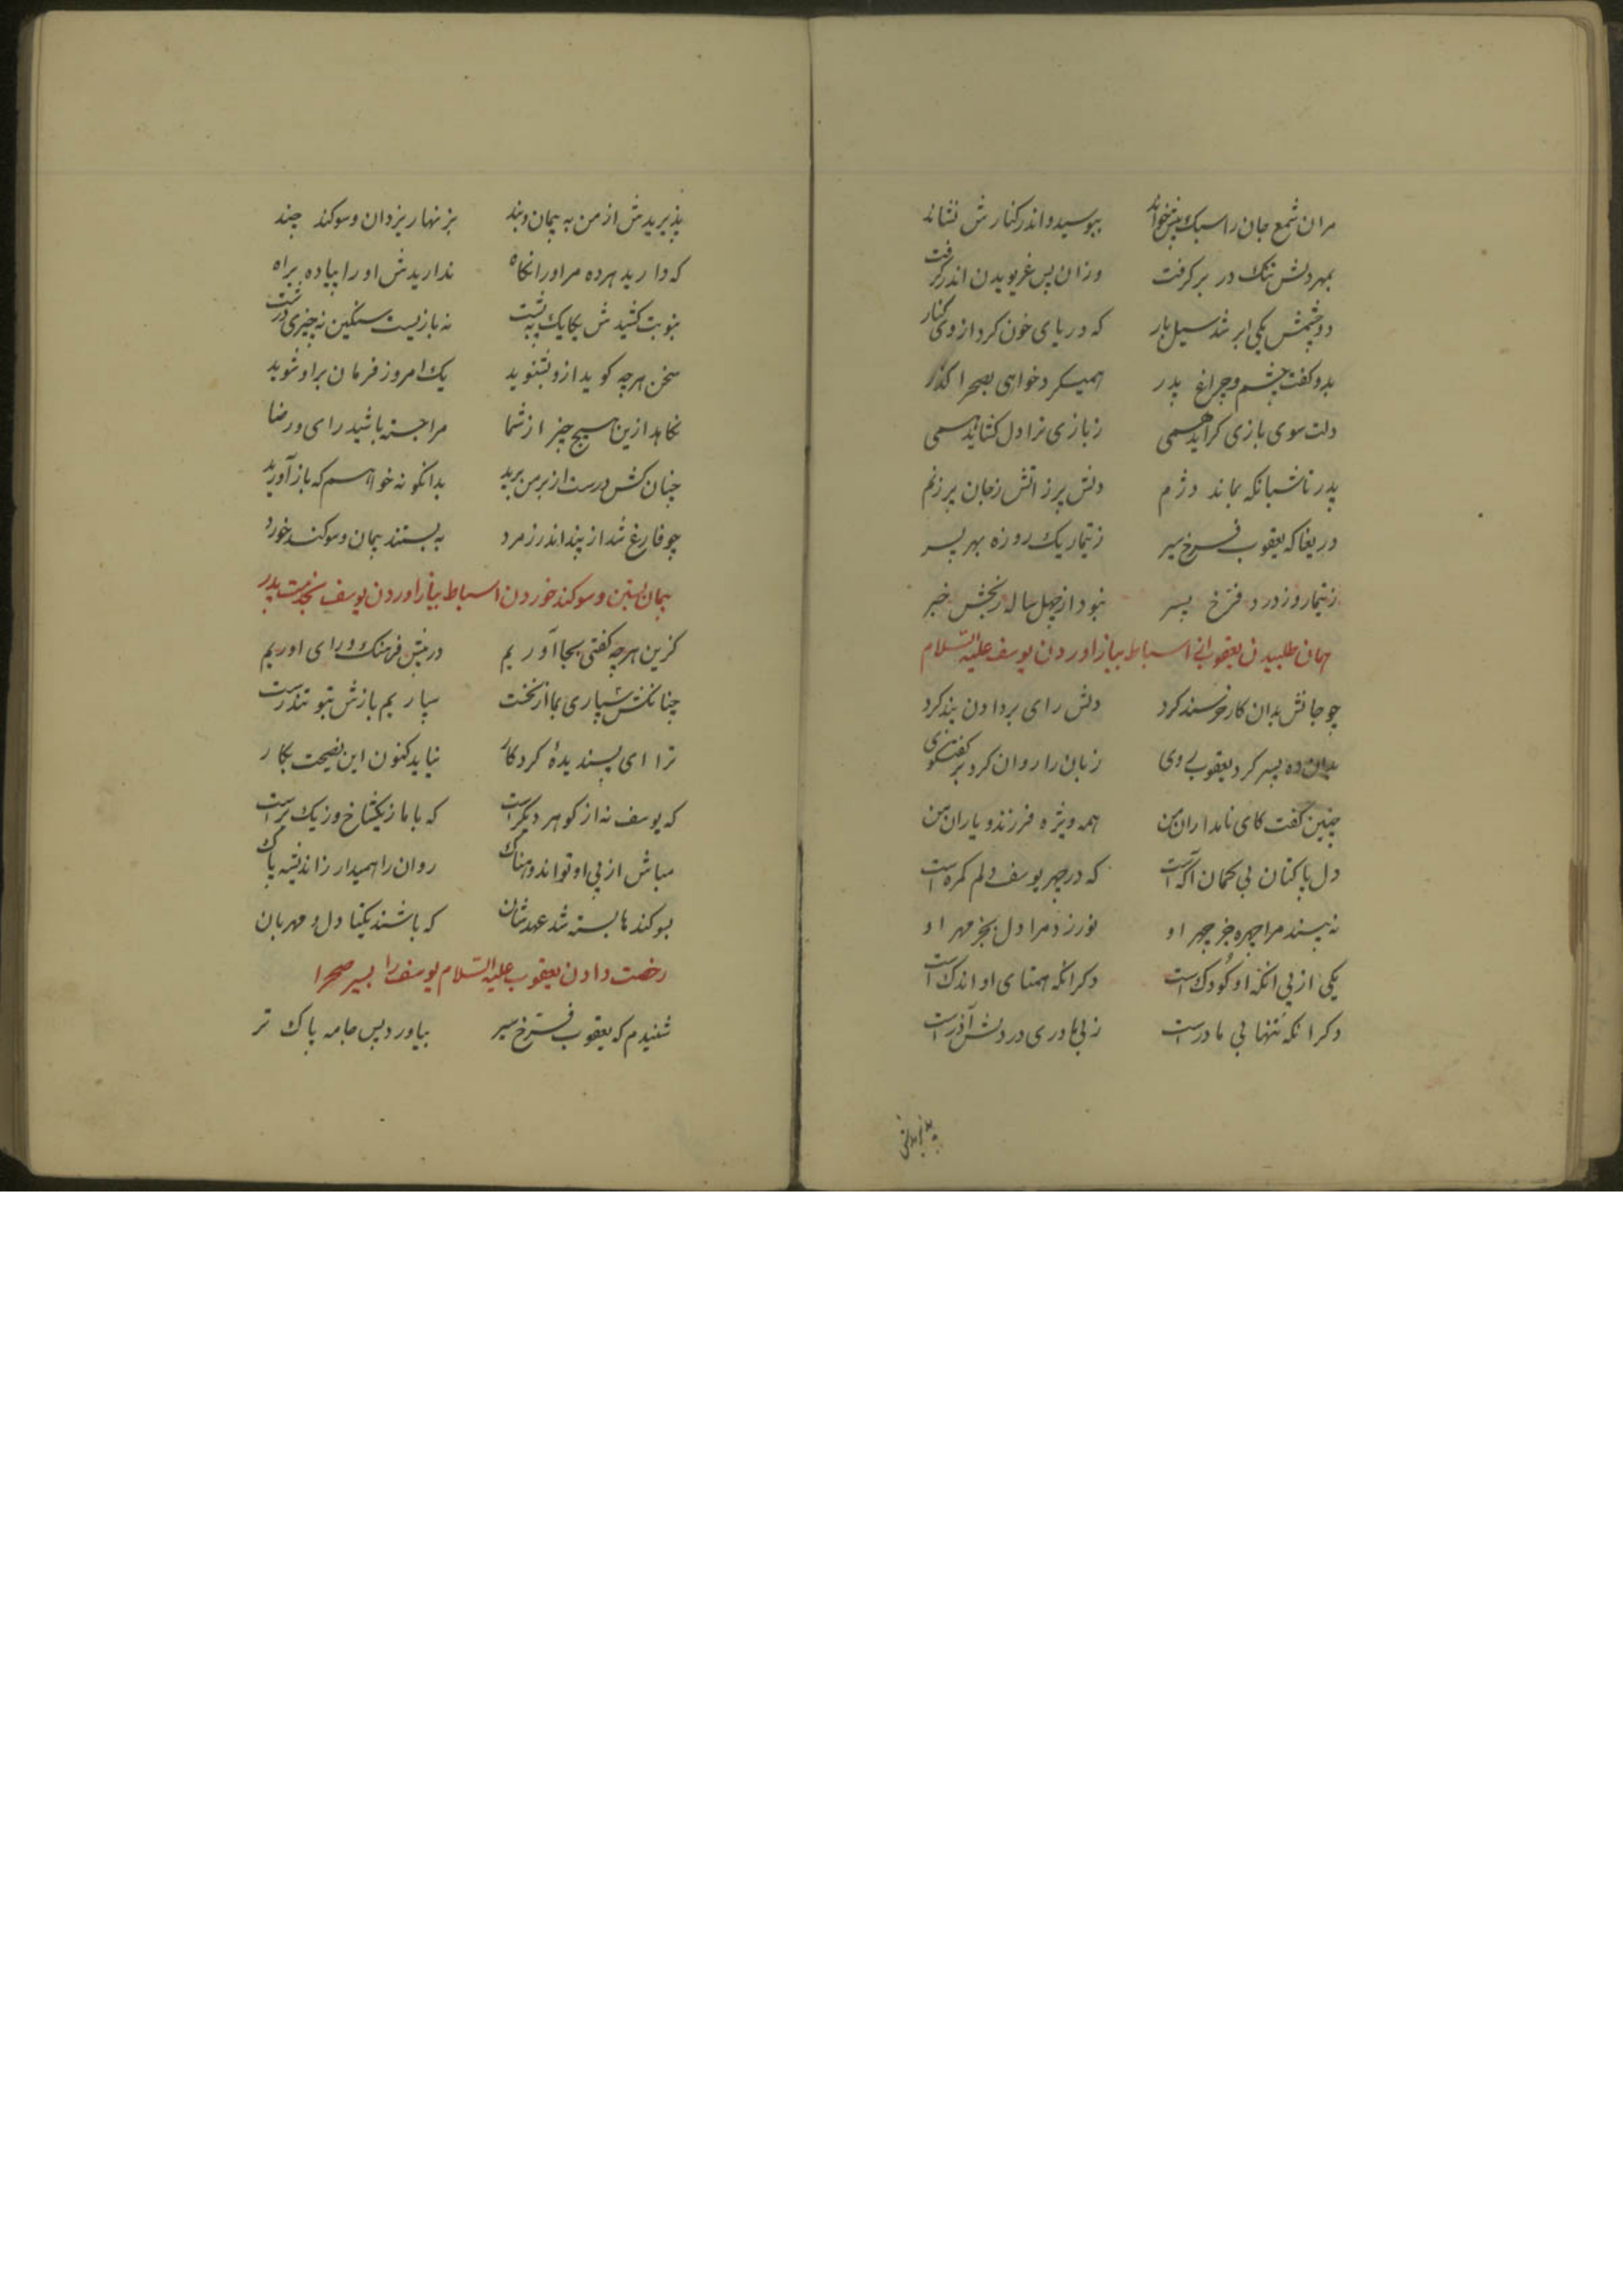 مران شمع جان را سبک پیش خواند ببوسید و اندر کنارش نشاند
بمهر دلش تنک در بر کرفت وزان پس غریویدن اندر کرفت
دو چشمش یکی ابر شد سیل بار که دریای خون کرد از وی کنار
بدو کفت چشم و چراغ پدر همیکرد خواهی بصحرا کذر
دلت سوی بازی کراید همی ز بازی ترا دل کشاید همی
پدر تا شبانکه بماند دژم دلش پر ز اتش ز جان پر ز نم
دریغا که یعقوب فرخ سیر ز تیمار یک روزه بهر پسر
ز تیمار وز درد فرخ پسر نبود از چهل ساله رنجش خبر
پیمان طلبیدن یعقوب از اسباط بباز اوردن یوسف علیه السلام
چو جانش بدان کار خرسند کرد دلش رای بر دادن پند کرد
بدان ده پسر کرد یعقوب روی زبان را روان کرد بر کفتکوی
چنین کفت کای نامداران من همه ویژه فرزند و یاران من
دل پاکتان بی کمان اکه است که در چهر یوسف دلم کمره است
نه بیسند مرا چهره جز چهر او نورزد مرا دل بجز مهر او
یکی از پی انکه او کودک است دکر انکه همتای او اندک است
دکر انکه تنها بی مادرست ز بی مادری در دلش آذرست
پذیریدش از من به پیمان و بند بزنهار یزدان و سوکند چند
که دارید هر ده مر او را نکاه نداریدش او را پیاده براه
بنوبت کشیدش یکایک به پشت نه بازیست سنکین نه چیزی درشت
سخن هرچه کوید ازو بشنوید یک امروز فرمان بر او شوید
نکاهد ازین هیچ چیز از شما مرا جسته باشید رای و رضا
چنان کش درست از بر من برید بدانکونه خواهم که باز آورید
چو فارغ شد از پند اندرز مرد به بستند پیمان و سوکند خورد
پیمان بستن و سوکند خوردن اسباط بباز اوردن یوسف بخدمت پدر
کزین هرچه کفتی بجا آوریم درینش فرهنک و رای اوریم
چنانکش سپاری بما از نخست سپاریم بازش بتو تندرست
ترا ای پسندیدهٔ کردکار نیاید کنون این نصیحت بکار
که یوسف نه از کوهر دیکرست که با ما ز یکشاخ وز یک برست
مباش از پی او تو اندوهناک روان را همیدار ز اندیشه پاک
بسوکندها بسته شد عهدشان که باشند یکتا دل و مهربان
رخصت دادن یعقوب علیه السلام یوسف را بسیر صحرا
شنیدم که یعقوب فرخ سیر بیاورد پس جامه پاک تر